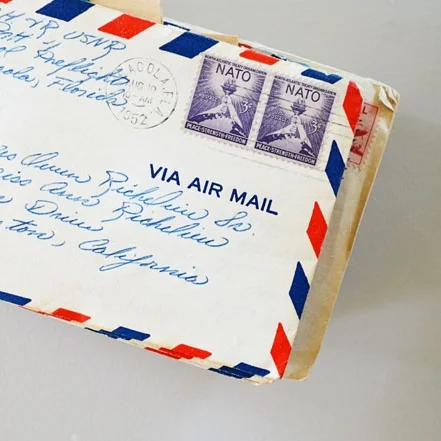 USNR
Preflight
Florida
ACOLA, FLA
1952
NORTH ATLANTIC TREATY ORGANIZATION
NATO
3¢
PEACE-STRENGTH-FREEDOM
NORTH ATLANTIC TREATY ORGANIZATION
NATO
3¢
PEACE-STRENGTH-FREEDOM
VIA AIR MAIL
Owen Richelieu Sr.
Ann Richelieu
Drive
ton, California